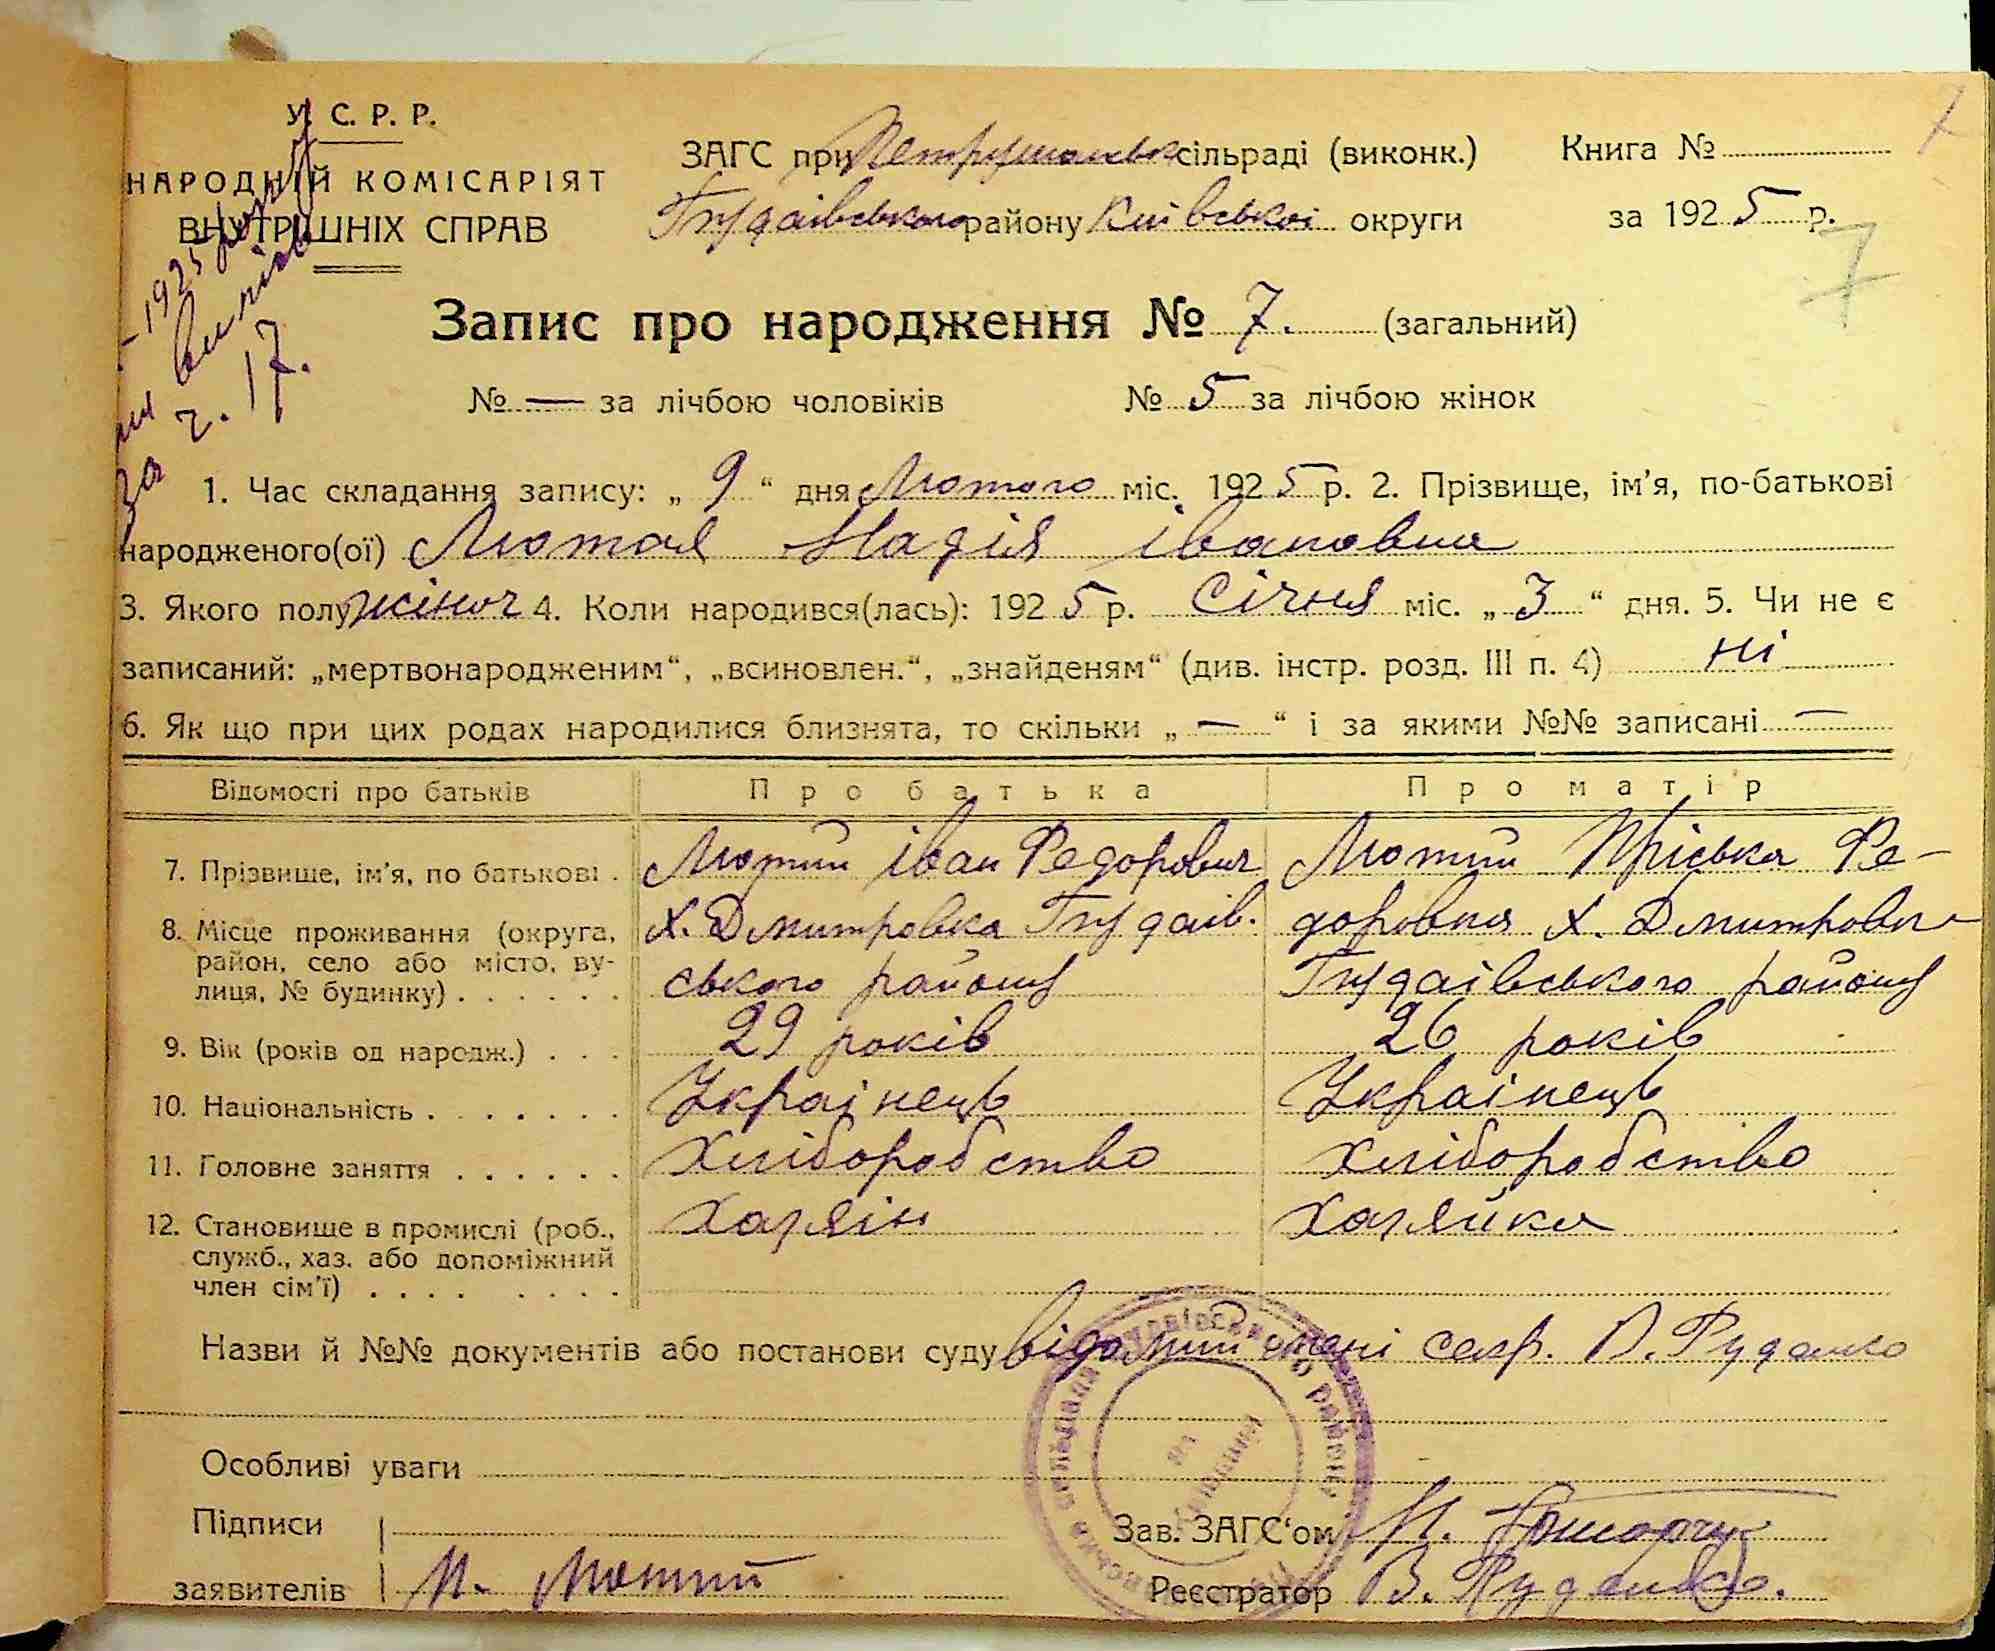 У. С. Р. Р.
НАРОДНІЙ КОМІСАРІЯТ
ВНУТРІШНІХ СПРАВ
ЗАГС при сільраді (виконк.)
Книга №
района Київської округи
за 1925 р.
7
Запис про народження № 7. (загальний)
№ — за лічбою чоловіків № 5 за лічбою жінок
1. Час складання запису: „ 9 “ дня Лютого міс. 1925 р. 2. Прізвище, ім’я, по-батькові
народженого(ої) Лютая Надія Івановна
3. Якого полу жіноч 4. Коли народився(лась): 1925 р. Січня міс. „ 3 “ дня. 5. Чи не є
записаний: „мертвонародженим“, „всиновлен.“, „знайденям“ (див. інстр. розд. III п. 4) ні
6. Як що при цих родах народилися близнята, то скільки „ — “ і за якими №№ записані —
Відомості про батьків Про батька Про матір
7. Прізвище, ім’я, по батькові . Лютий Іван Федорович Лютий Пріська Фе-
8. Місце проживання (округа, район, село або місто, ву-лиця, № будинку) . . . . . .
Х. Дмитровка
ського району
доровна Х. Дмитровка
району
9. Вік (років од народж.) . . . 29 років 26 років
10. Національність . . . . . . . Українець Українець
11. Головне заняття . . . . . . Хліборобство Хліборобство
12. Становище в промислі (роб., Хазяін Хазяйка
служб., хаз. або допоміжний
член сім’ї) . . . . . . . .
Назви й №№ документів або постанови суду відомий мені секр. В. Руденко
Особливі уваги
Підписи
заявителів І. Лютий
Зав. ЗАГС‘ом
Реєстратор В. Руденко.
1925
за ч. 17.